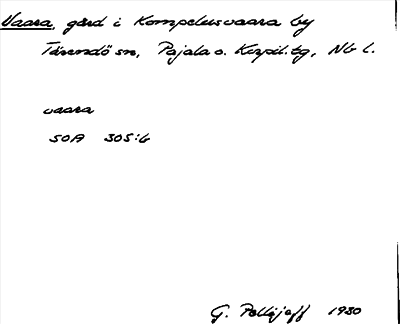 Vaara, gård i Kompelusvaara by
Tärendö sn, Pajala o. Korpil. tg, Nb l.
vaara
SOA 305:6
G. Pellijeff 1930